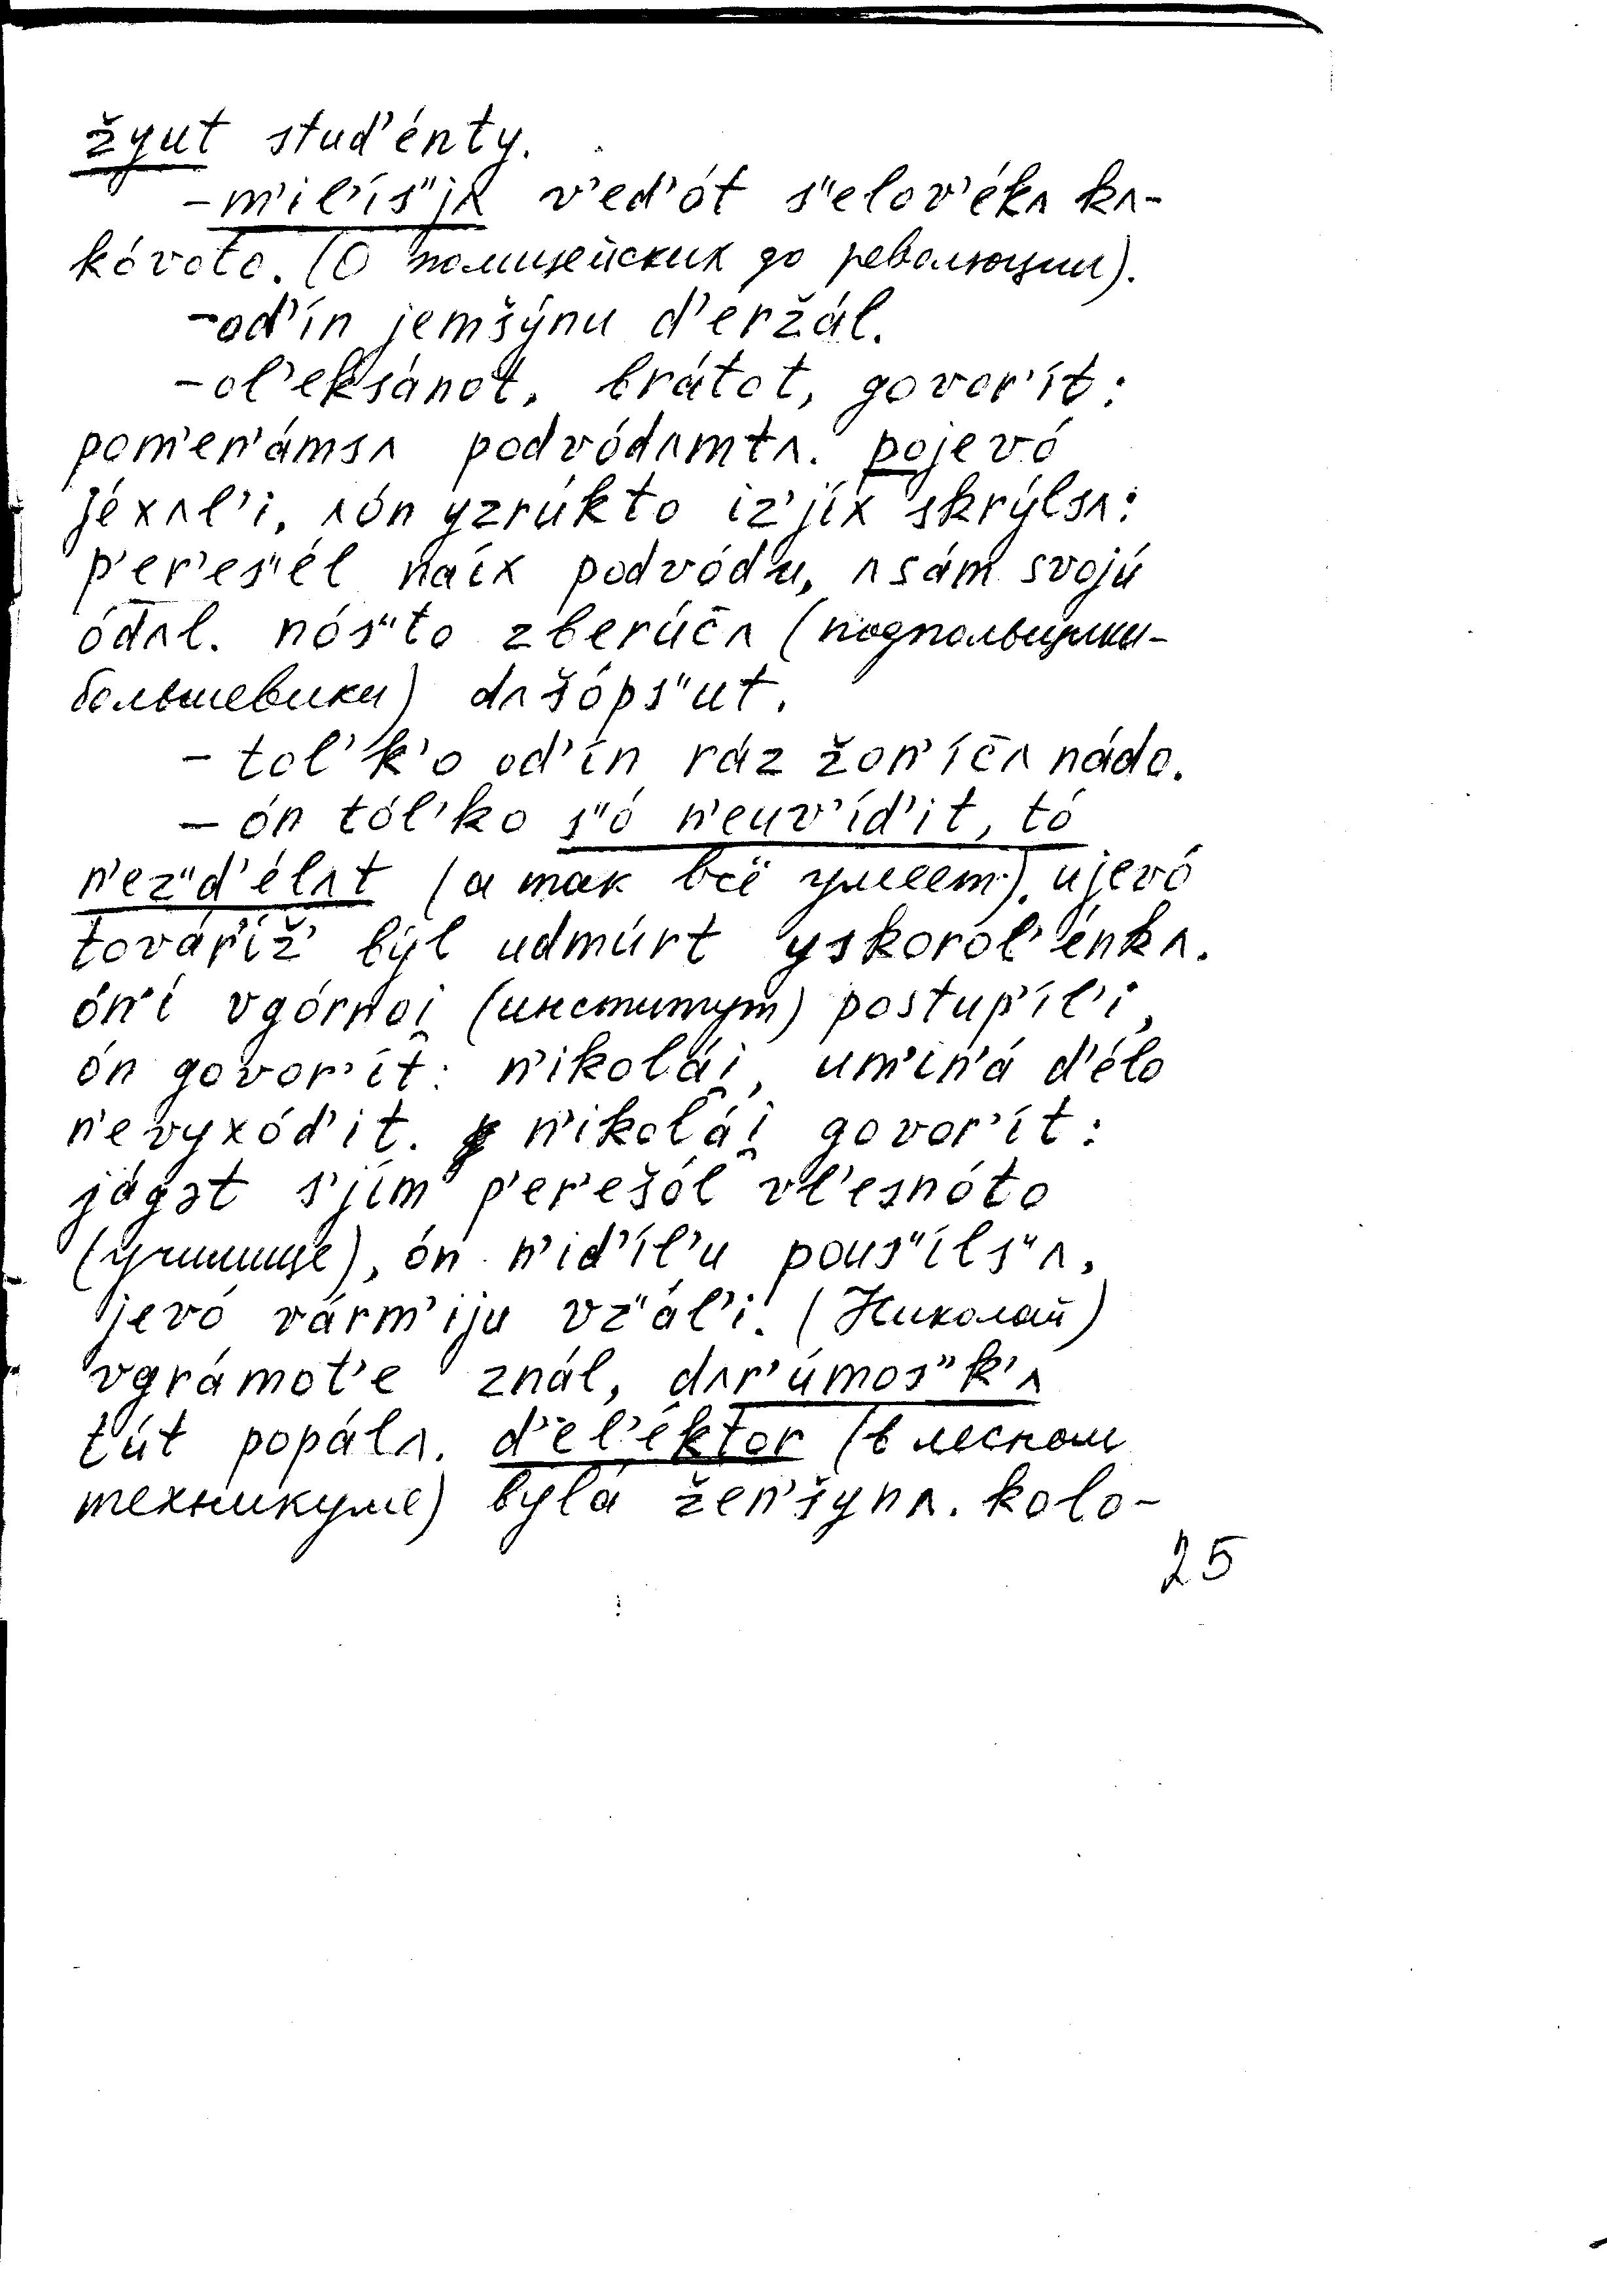 žyut stud'énty.
– m'il'ís"jʌ v'ed'ót s"elov'ékʌ kʌ-
kóvoto. (О полицейских до революции).
– od'ín jemšýnu d'eržál.
– ol'eksánot, brátot, govor'ít:
pom'en'ámsʌ podvódʌmtʌ. pojevó
jéxʌl'i, ʌón yzrúkto iz'jíx skrýlsʌ:
p'er'es"él naíx podvódu, ʌsám svojú
ódʌl. nós"to zberúčʌ (подпольщики-
большевики) dʌšóps"ut.
– tol'k'o od'ín ráz žon'íčʌ nádo.
– ón tól'ko s"ó n'euv'íd'it, tó
n'ez"d'élʌt (а так всё умеет). ujevó
továr'iž' býl udmúrt yskorol'énkʌ.
ón'í vgórnoi̯ (институт) postup'íl'i,
ón govor'ít: n'ikolái̯, um'in'á d'élo
n'evyxód'it. n'ikolái̯ govor'ít:
jágət s'jím p'er'ešól vl'esnóto
(училище), ón n'id'íl'u pous"íls"ʌ,
jevó várm'iju vz"ál'i. (Николай)
vgrámot'e znál, dʌr'úmos"k'ʌ
tút popálʌ. d'el'éktor (в лесном
техникуме) bylá žen'šynʌ. kolo-
25